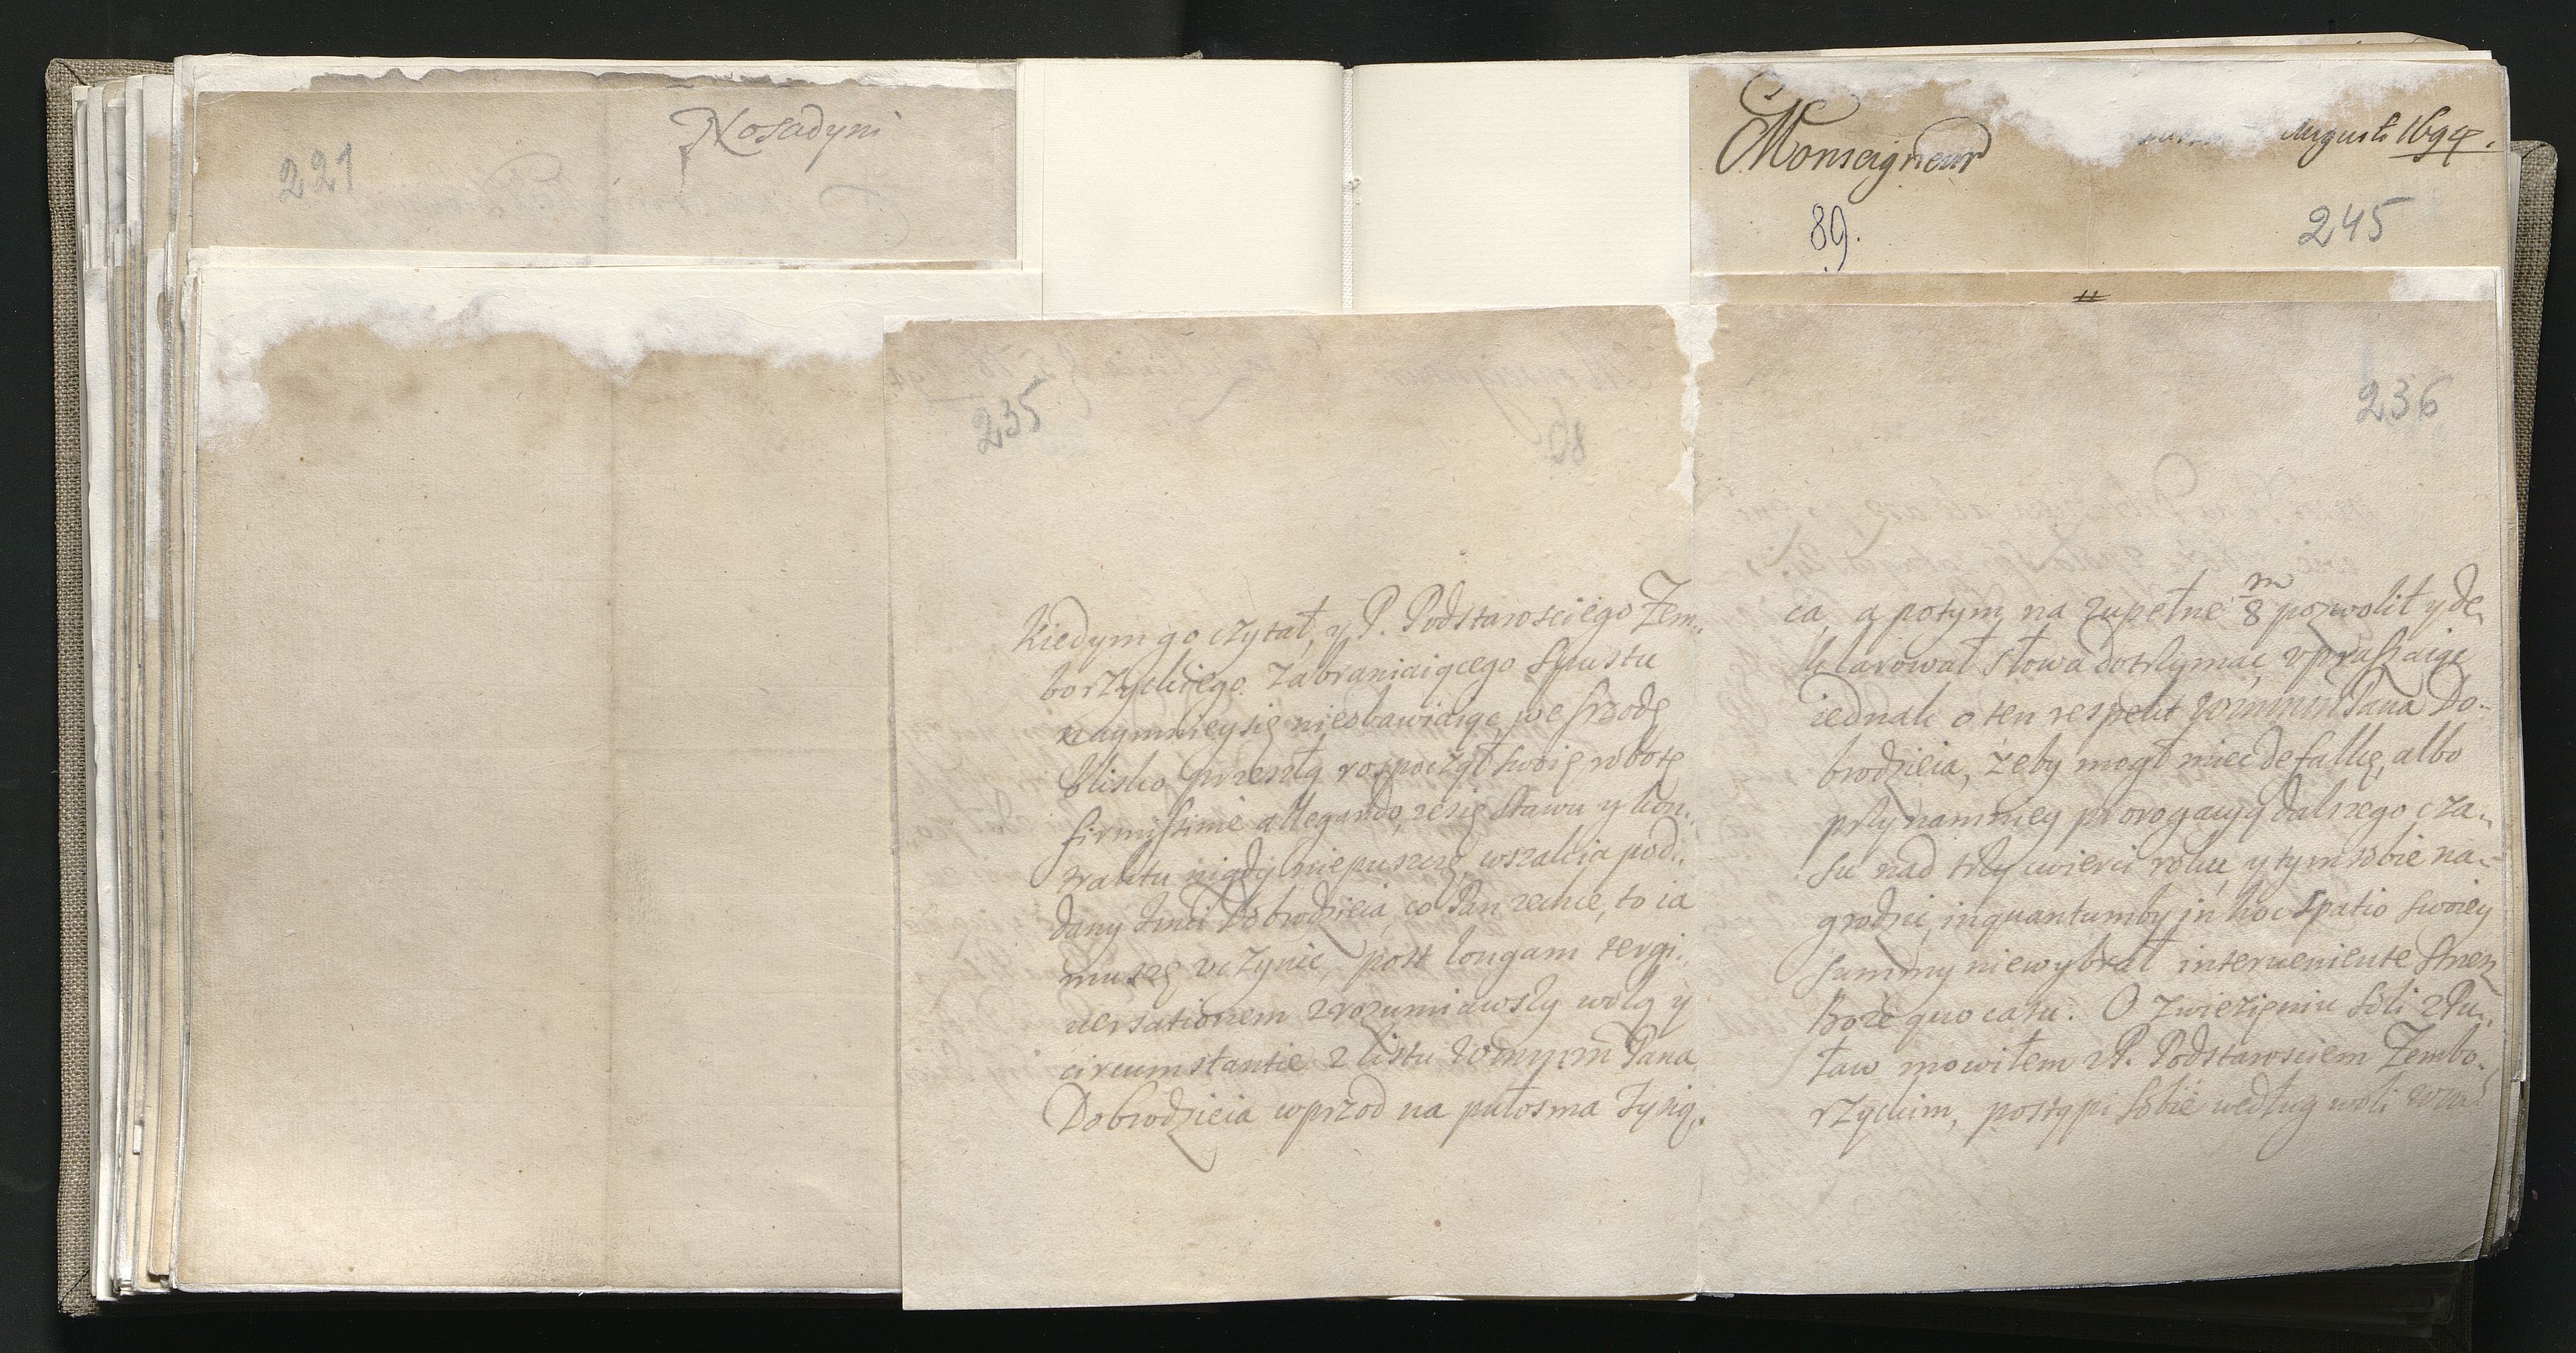 Nosadyni
221
Monseigneur
Augusti 1694.
89.
245
235
Kiedym go czytał, y P. Podstarosciego Zem„
borzyckiego zabraniaiącego spustu
naymniey się nieobawiaiąc, we srzodę
blisko przeszłą rospoczął swoię robotę
firmissime allegando, ze się stawu y kon„
traktu nigdy niepuszczę, wszak ia pod„
dany Jmci Dobrodzieia, co Pan zechce, to ia
muszę vczynić, post longam tergi„
uersationem zrozumiawszy wolą y
circumstantie z listu Pana
Dobrodzieia wprzod na pułosma tysią„
236
ca, a potym na zupełne 8 m pozwolił y de„
klarował słowa dotrzymać, vpraszaiąc
iednak o ten respekt Pana Do„
brodzieia, żeby mogł mieć defalkę, albo
przynamniey prorogacyą dalszego cza„
su nad trzy cwierci roku, y tym sobie na„
grodzić, inquantumby in hoc spatio swoiey
summy niewybrał interueniente
Boże quo casu. O zwiezieniu soli z Pu„
ław mowiłem z P. Podstarosciem Zembo„
rzyckim, postąpi sobie według woli